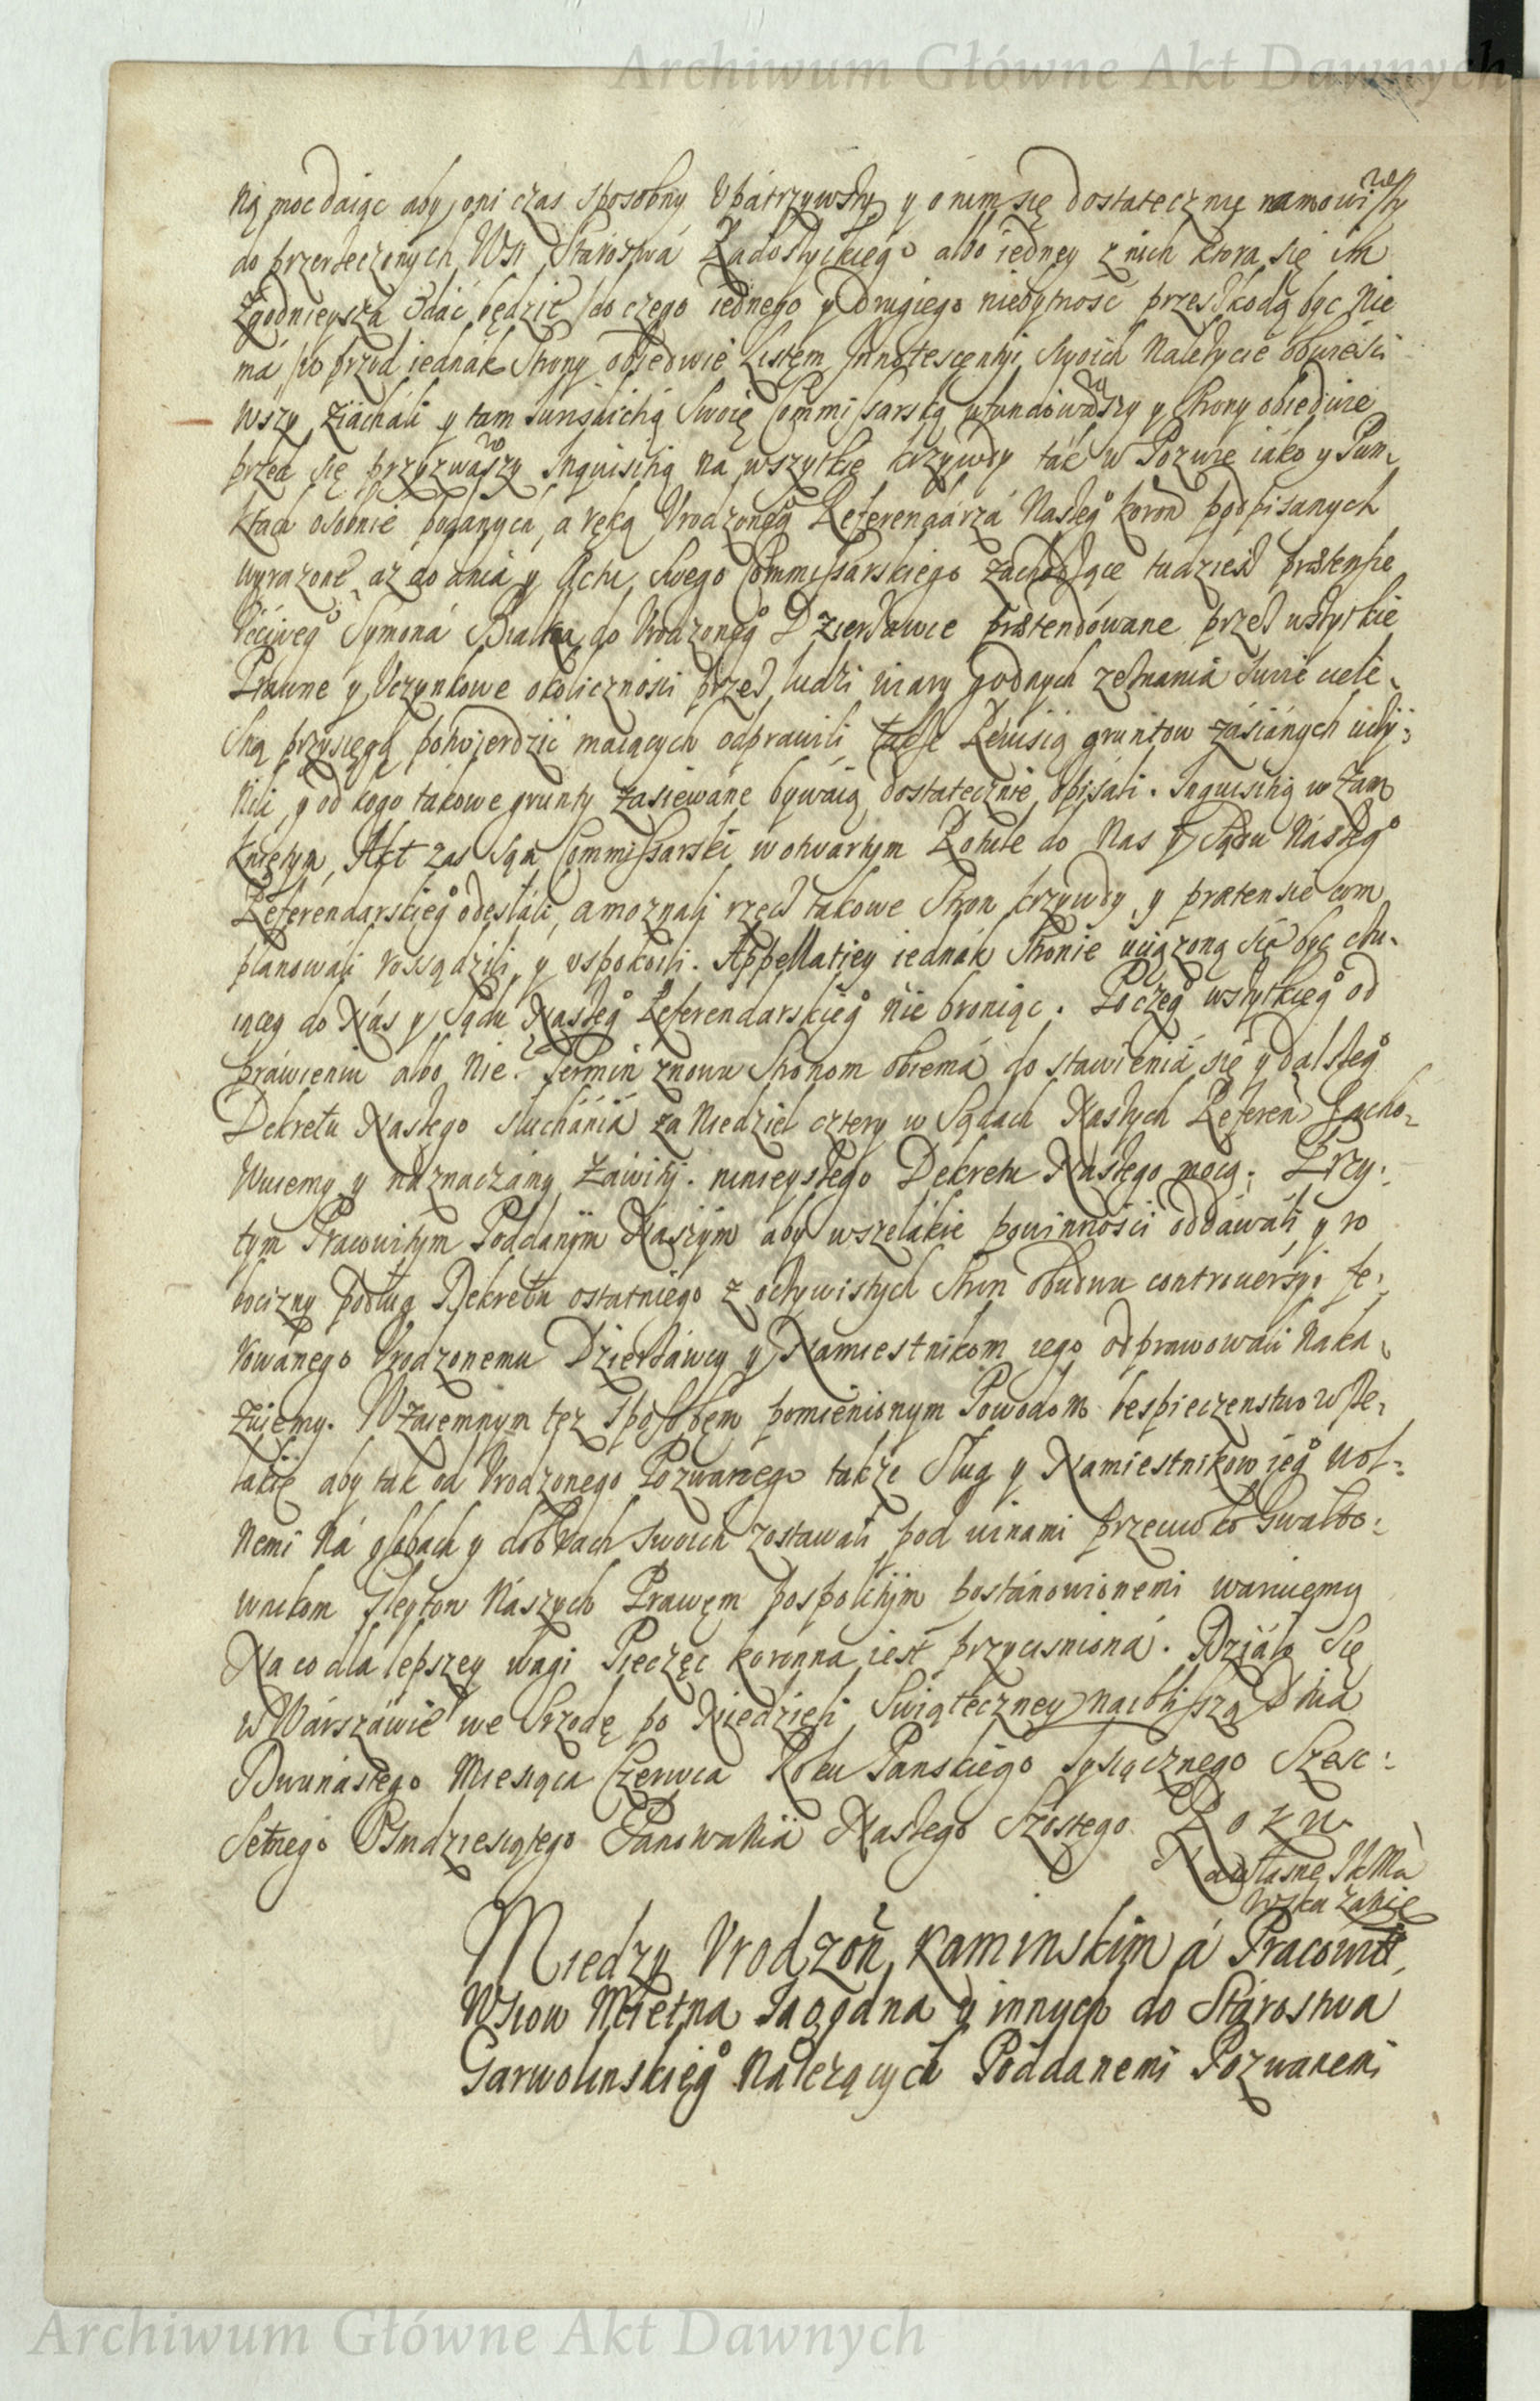 Archiwum Główne Akt Dawnych
ną moc daiąc aby oni czas sposobny Vpatrzywszy y o nim się dostatecznie namowiwszy
do przerzeczonych Wsi Starostwa albo iedney z nich ktora się im
Zgodnieysza zdać będzie do czego iednego y drugiego niebytność przeszkodą być nie
má po przod iednák Strony obiedwie Listem Innotescentyi Swoich Należycie obwieści
wszy ziácháli y tam Jurisdictią Swoię Commissarską ufundowawszy y Strony obiedwie
przed się przyzwawszy Inquisitią na wszytkie krzywdy ták w Pozwie iáko y Pun,
ktach osobnie podanych, a ręką Vrodzoneg Referendárzá Naszeg Koron podpisanych
wyrazone, aż do dnia y Actu Swego Commissarskiego zachodzące tudziesz prætensie
Vcciweg Symoná do Vrodzoneg Dzierżawce prætendowane przez wszytkie
Prawne y Vczynkowe okoliczności przez ludzi wiary godnych zeznania Swie ciele,
sną przysięgą potwierdzić maiących odprawili, także Rewisią gruntow zásiánych uczy;
nili, y od kogo takowe grunty zasiewane bywáią dostatecznie opisali. Inquisitią w zám
knietym, Akt zas Commissarski w otwartym Rotule do Nas y Sądu Nászeg
Referendarskieg odesłáli, a moznali rzecz takowe Stron krzywdy, y prætensie com
planowáli rossądzili y uspokoili. Appellatiey iednák Stronie uciązoną się być czu,
iącey do Nás y Sądu Naszeg Referendarskieg nie broniąc. Po czeg wszytkieg od
práwieniu abo nie. Termin znowu Stronom obiemá do stawieniá się y dalszeg
Dekretu Naszego słuchániá za Niedziel cztery w Sądach Naszych Referen zacho,
wuiemy y náznaczámy záwity. ninieyszego Dekretu Naszego mocą; Przy,
tym Pracowitym Poddanym Naszym aby wszelákie powinności oddáwáli, y ro
bocizny podług Dekretu ostatniego z oczywistych Stron obudwu controuersyi fe,
rowánego Vrodzonemu Dzierżáwcy y Namiestnikom iego odprawowali naka,
zuiemy. Wzaiemnym tez sposobem pomienionym Powodom bespieczenstwo wsze,
lakie aby tak od Vrodzonego Pozwanego także Sług y Namiestnikow ieg wol,
nemi ná osobach y dobrach swoich zostawali pod winami przeciwko Gwałto,
wnikom Gleytow Nászych Prawem pospolitym postánowionemi waruiemy
Na co dla lepszey wagi Pieczęć koronna iest przycisniona. Dziáło się
w Wárszáwie we Srzodę po Niedzieli Swiąteczney naibliższą Dnia
Dwunástego Miesiąca Czerwca Roku Panskiego Tysiącznego Szesc,
Setnego Osmdziesiątego Panowania Naszego Szostego Roku
Na własne IKMci
wskazanie
Miedzy Vrodzon Kaminskim á Pracowit,
Wsiow Mietna Jagodna y innych do Stárostwa
Garwolinskieg Náleżących Poddanemi Pozwanemi
Archiwum Główne Akt Dawnych